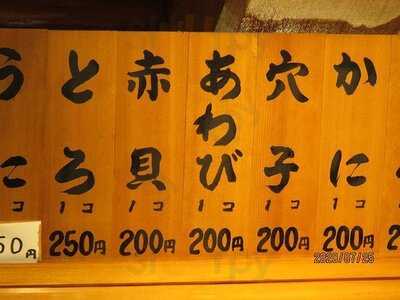 かに
1コ
200円
穴子
1コ
200円
あわび
1コ
200円
赤貝
1コ
200円
とろ
1コ
250円
うに
コ
50円
2020/07/25